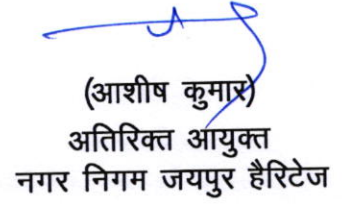 (आशीष कुमार)
अतिरिक्त आयुक्त
नगर निगम जयपुर हैरिटेज